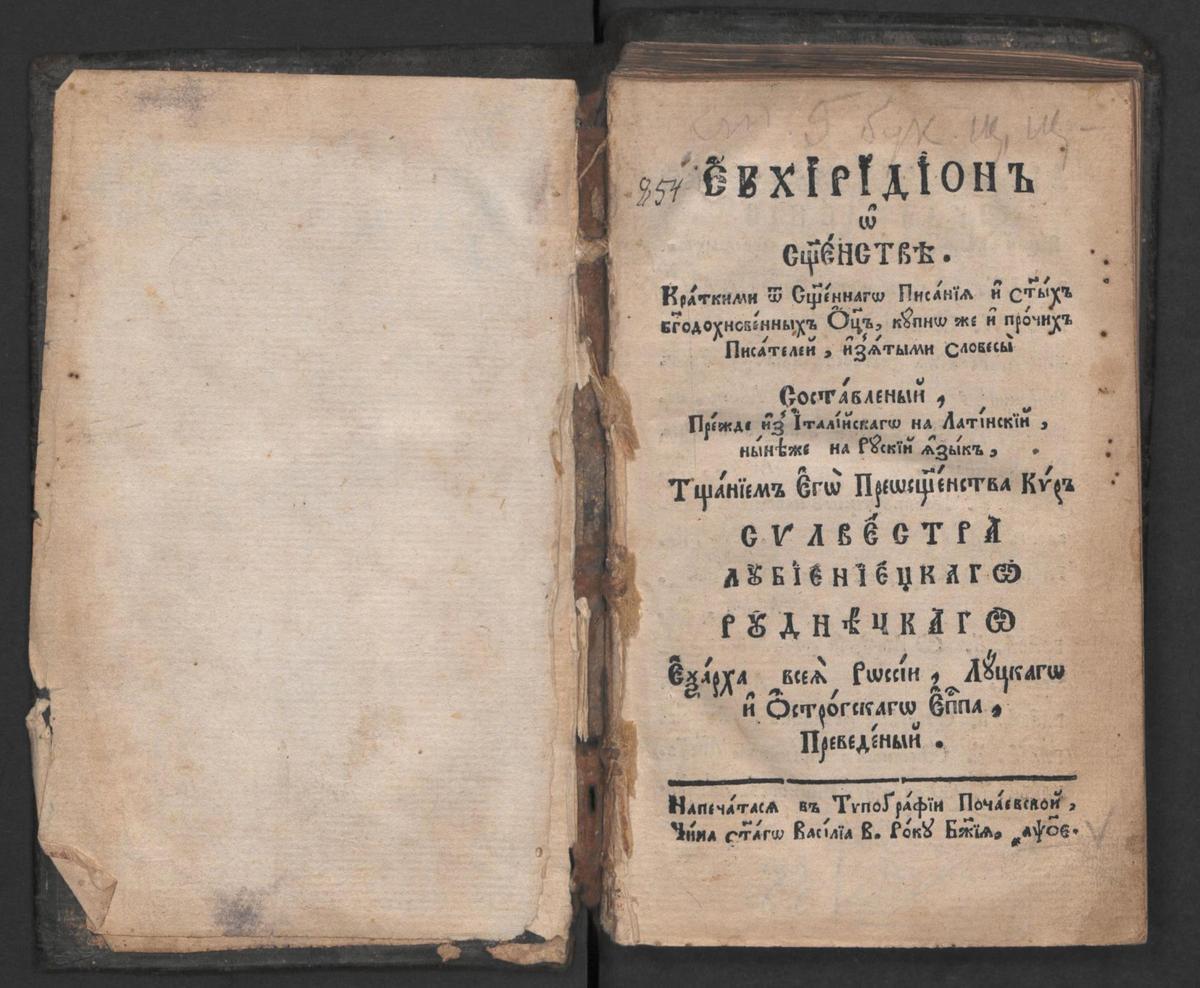 254
Є҆ѴХІ́РІ́ДІ́ОНЪ
ѡ҆
СЩ҃Е́НСТВѢ.
Кра́ткими ѿ Сщ҃е́ннагѡ Писа́нїѧ и҆ ст҃ы́хъ
бг҃одохнове́нныхъ Ѻ҆ц҃ъ, кꙋпнѡ же и҆ про́чихъ
Писа́телей, и҆з̾ѧ́тыми словесы̀
Соста́вленый,
Пре́жде и҆з̾ І҆талі́йскагѡ на Латі́нскїй,
ны́нѣже на Рꙋскїй ꙗ҆зы́къ,
Тща́нїемъ Є҆гѡ̀ Преѡсщ҃е́нства Кѵ́ръ
СѴЛВЕ́СТРА
ЛꙊБІЕНІЕ́ЦКАГѠ
РꙊДНѢ́ЦКАГѠ
Є҆ѯа́рха всеѧ̀ Рѡссі́и, Лꙋ́цкагѡ
и҆ Ѻ҆стро́гскагѡ Є҆п҃па,
Преведе́ный.
Напеча́тасѧ въ Тѵпоґра́фїи Поча́евской,
Чи́на ст҃а́гѡ Васі́лїа В. Ро́кꙋ Бж҃їѧ, ҂аѱ҃ое.